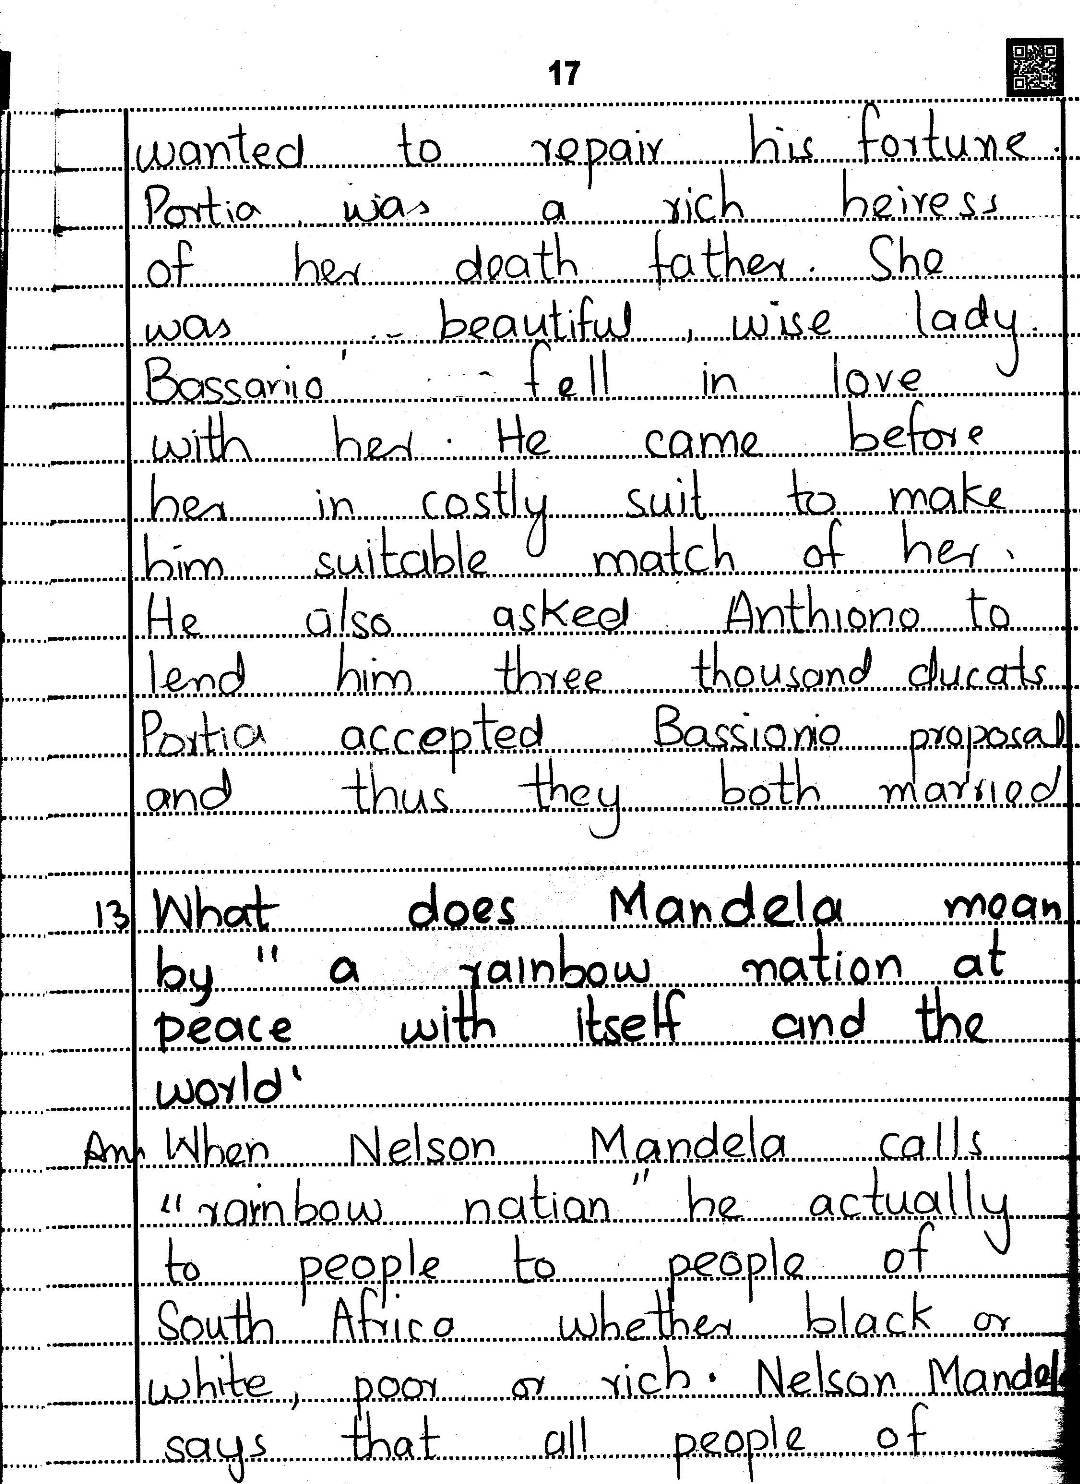 17
wanted to repair his fortune.
Portia was a rich heiress
of her death father. She
was beautiful, wise lady.
Bassanio fell in love
with her. He came before
her in costly suit to make
him suitable match of her.
He also asked Anthiono to
lend him three thousand ducats
Portia accepted Bassionio proposal
and thus they both married
13 What does Mandela mean
by " a rainbow nation at
peace with itself and the
world'
Ans When Nelson Mandela calls
"rainbow nation" he actually
to people to people of
South Africa whether black or
white, poor or rich. Nelson Mandel
says that all people of